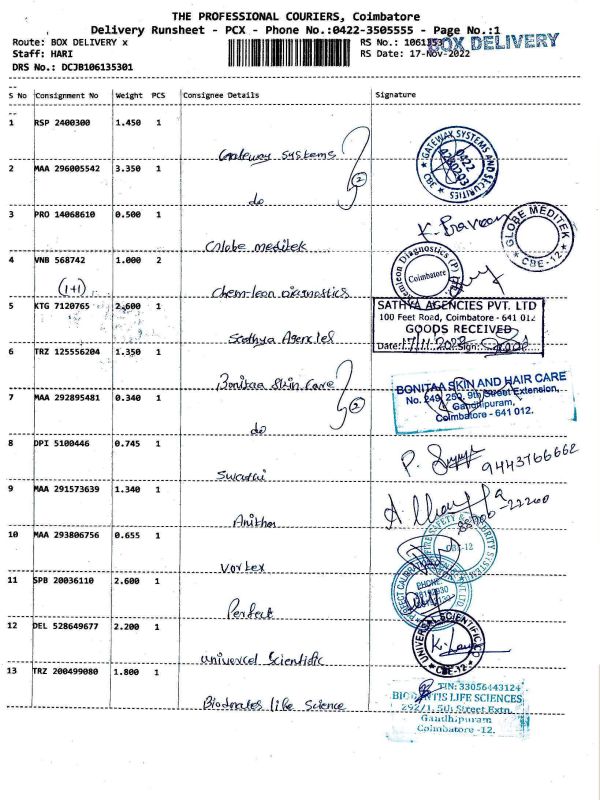 THE PROFESSIONAL COURIERS, Coimbatore
Delivery Runsheet - PCX - Phone No.:0422-3505555 - Page No.:1
Route: BOX DELIVERY x
RS No.: 1061353
BOX DELIVERY
Staff: HARI
RS Date: 17-Nov-2022
DRS No.: DCJB106135301
S No Consignment No Weight PCS Consignee Details Signature
1 RSP 2400300 1.450 1
Gateway systems
GATEWAY SYSTEMS AND SECURITIES
0422
4280203
CBE
2 MAA 296005542 3.350 1
do
2
3 PRO 14068610 0.500 1
Globe meditek
K. Praveen
GLOBE MEDITEK
CBE-12
4 VNB 568742 1.000 2
(1+1)
Chem-leon Diagnostics
Chemileon Diagnostics (P)
Coimbatore
5 KTG 7120765 2.600 1
Sathya Agencies
SATHYA AGENCIES PVT. LTD
100 Feet Road, Coimbatore - 641 012
GOODS RECEIVED
Date: 17/11/2022 Sign:
6 TRZ 125556204 1.350 1
Bonitaa Skin care
7 MAA 292895481 0.340 1
do
2
BONITAA SKIN AND HAIR CARE
No. 249, 250, 9th Street Extension,
Gandhipuram,
Coimbatore - 641 012.
8 DPI 5100446 0.745 1
Swathi
9443766662
9 MAA 291573639 1.340 1
Anitha
10 MAA 293806756 0.655 1
Vortex
FIRE SAFETY &
CBE-12
11 SPB 20036110 2.600 1
Perfect
PHONE:
12 DEL 528649677 2.200 1
universel Scientific
UNIVERSAL SCIENTIFIC
CBE-12
13 TRZ 200499080 1.800 1
Life Science
TIN: 33056443124
LIFE SCIENCES
292/1, 5th Street Extn.
Gandhipuram
Coimbatore -12.